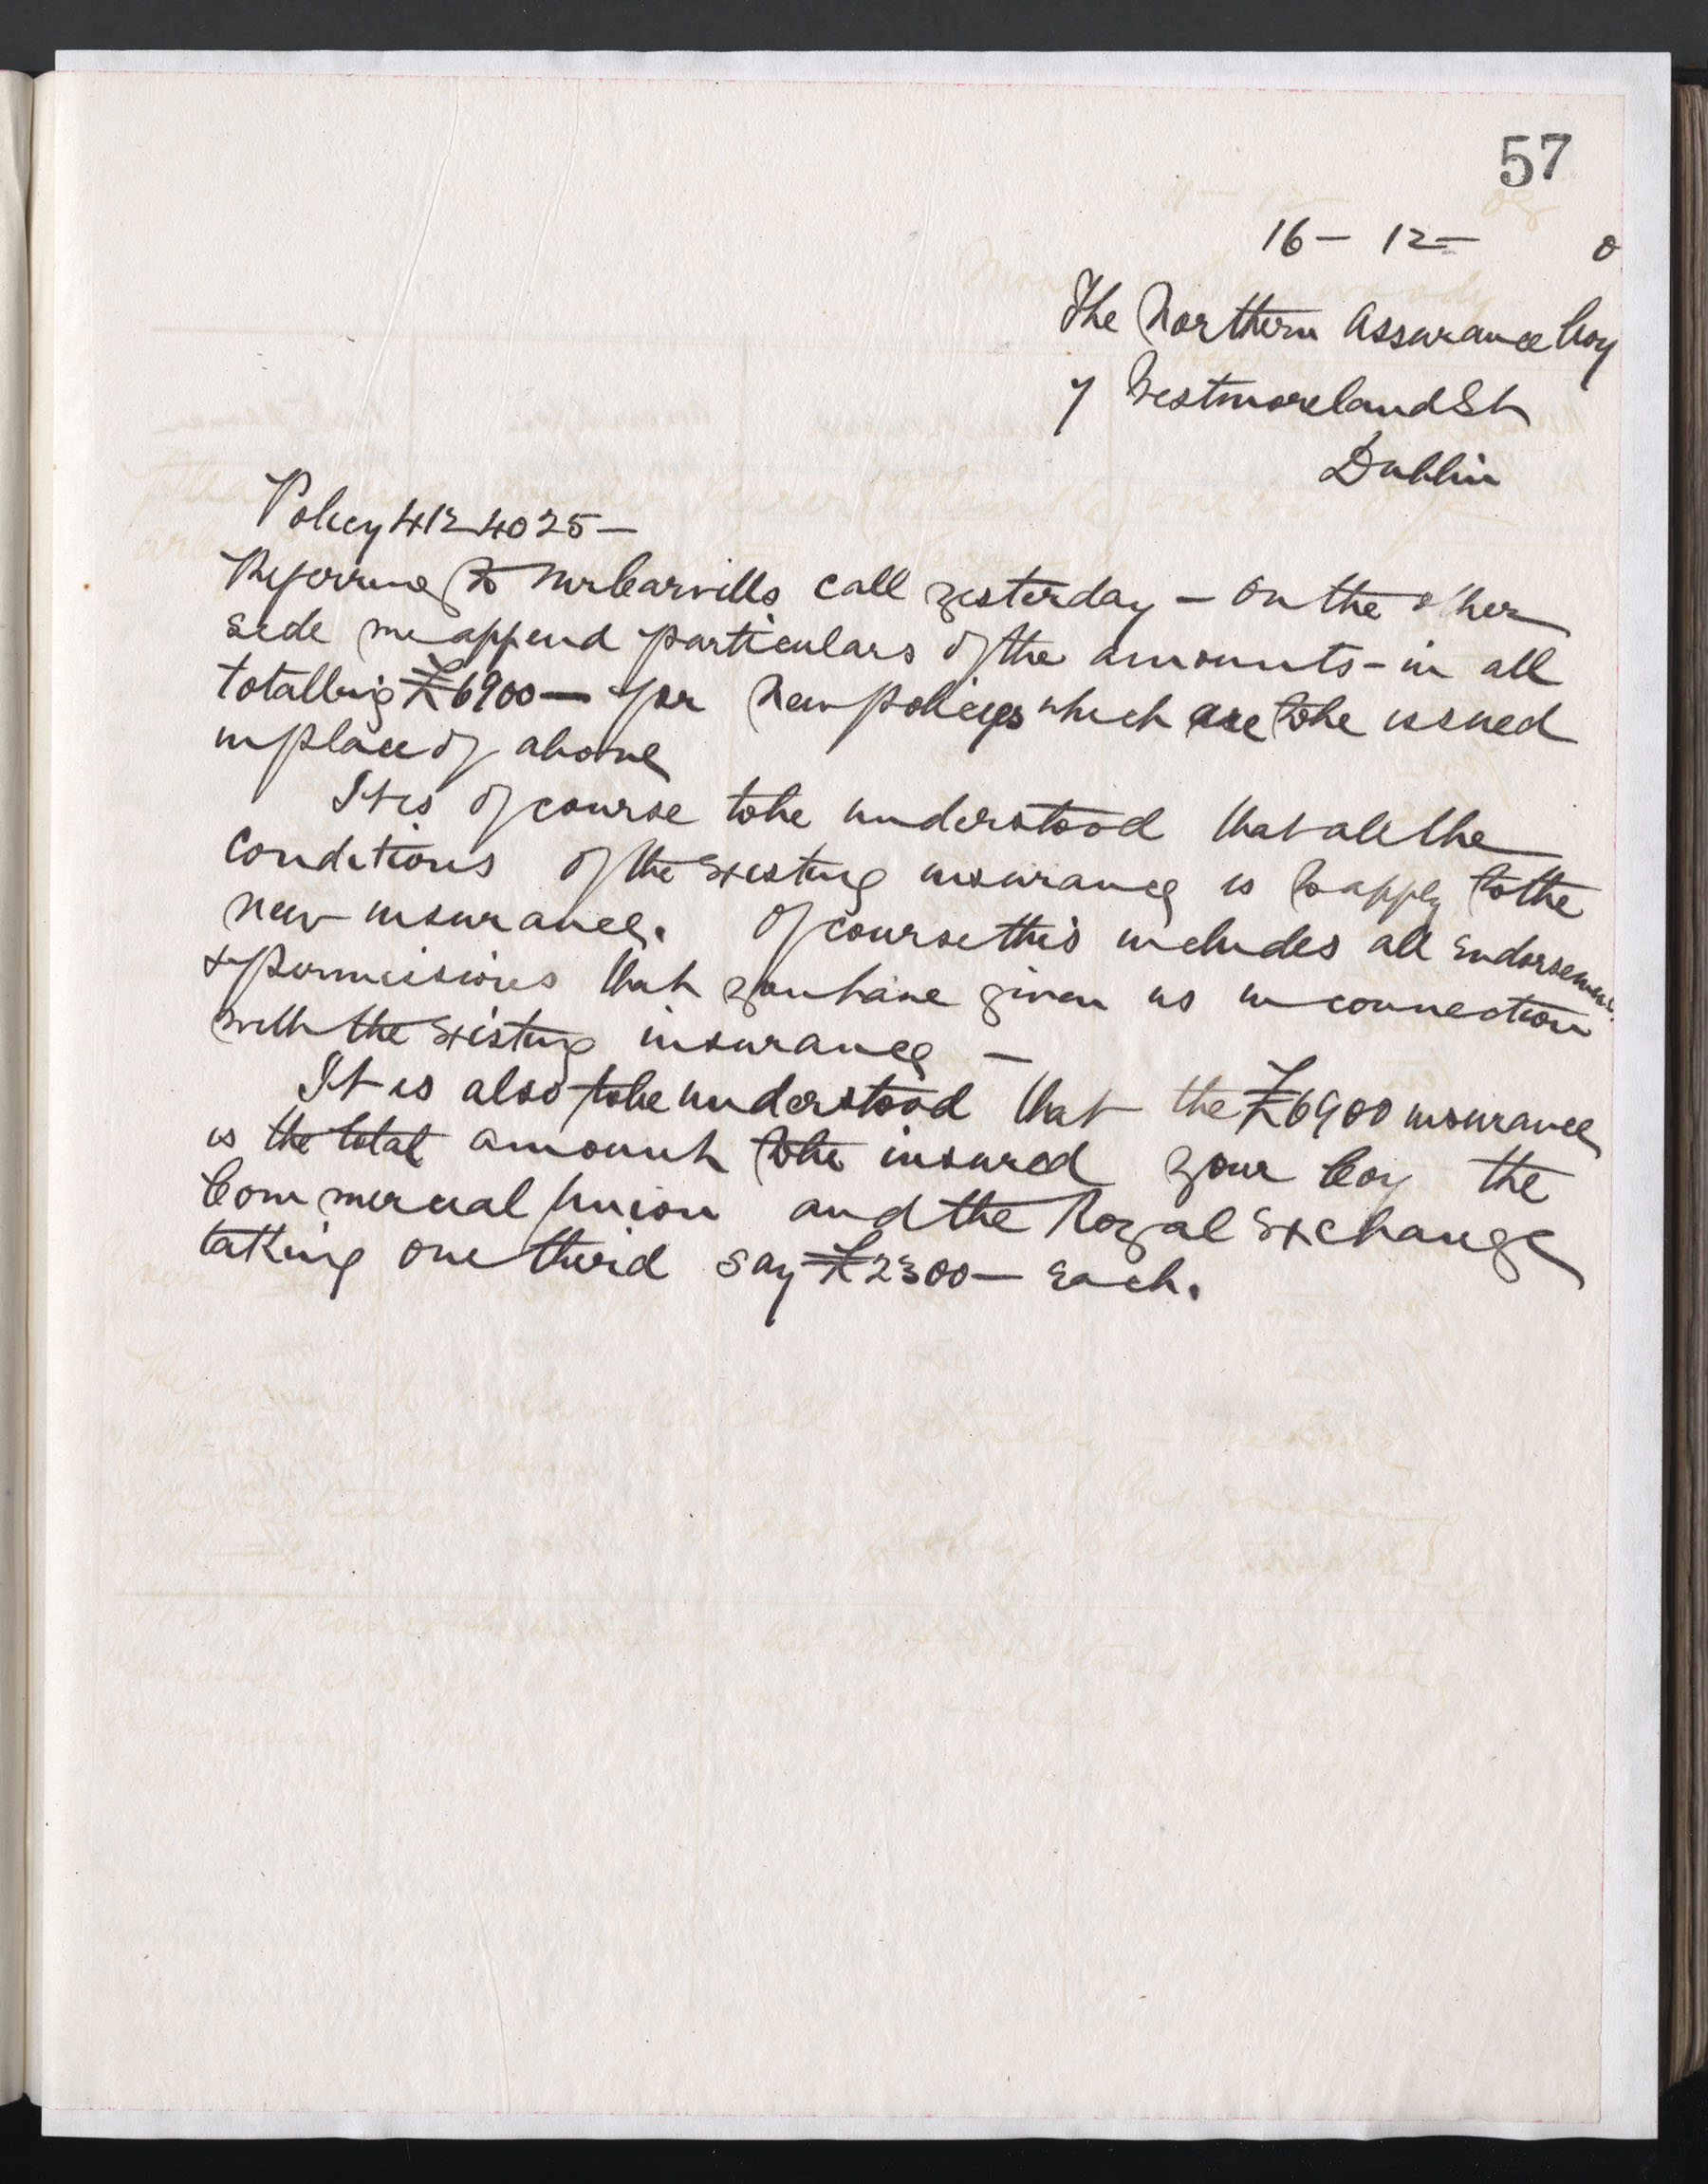 57
16 - 12 - 0
The Northern Assurance Coy
7 Westmoreland St
Dublin
Policy 4124025 -
Referring to Mr Carvills call yesterday - On the other
side we append particulars of the amounts - in all
totalling £6900 - for New policies which are to be issued
in place of above
It is of course to be understood that all the
Conditions of the Existing insurance is to apply to the
new insurance. Of course this includes all Endorsements
& permissions that you have given us in connection
with the Existing insurance -
It is also to be understood that the £6900 insurance
is the total amount to be insured your Coy the
Commercial Union and the Royal Exchange
taking one third say £2300 - Each.